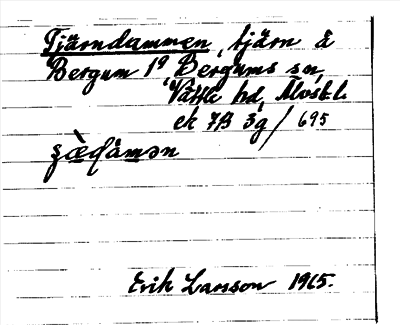 Tjärndammen, tjärn å
Bergum 1⁹ Bergums sn,
Vättle hd, Älvsb.l.
ek 7B 3g/695
Erik Larsson 1965.